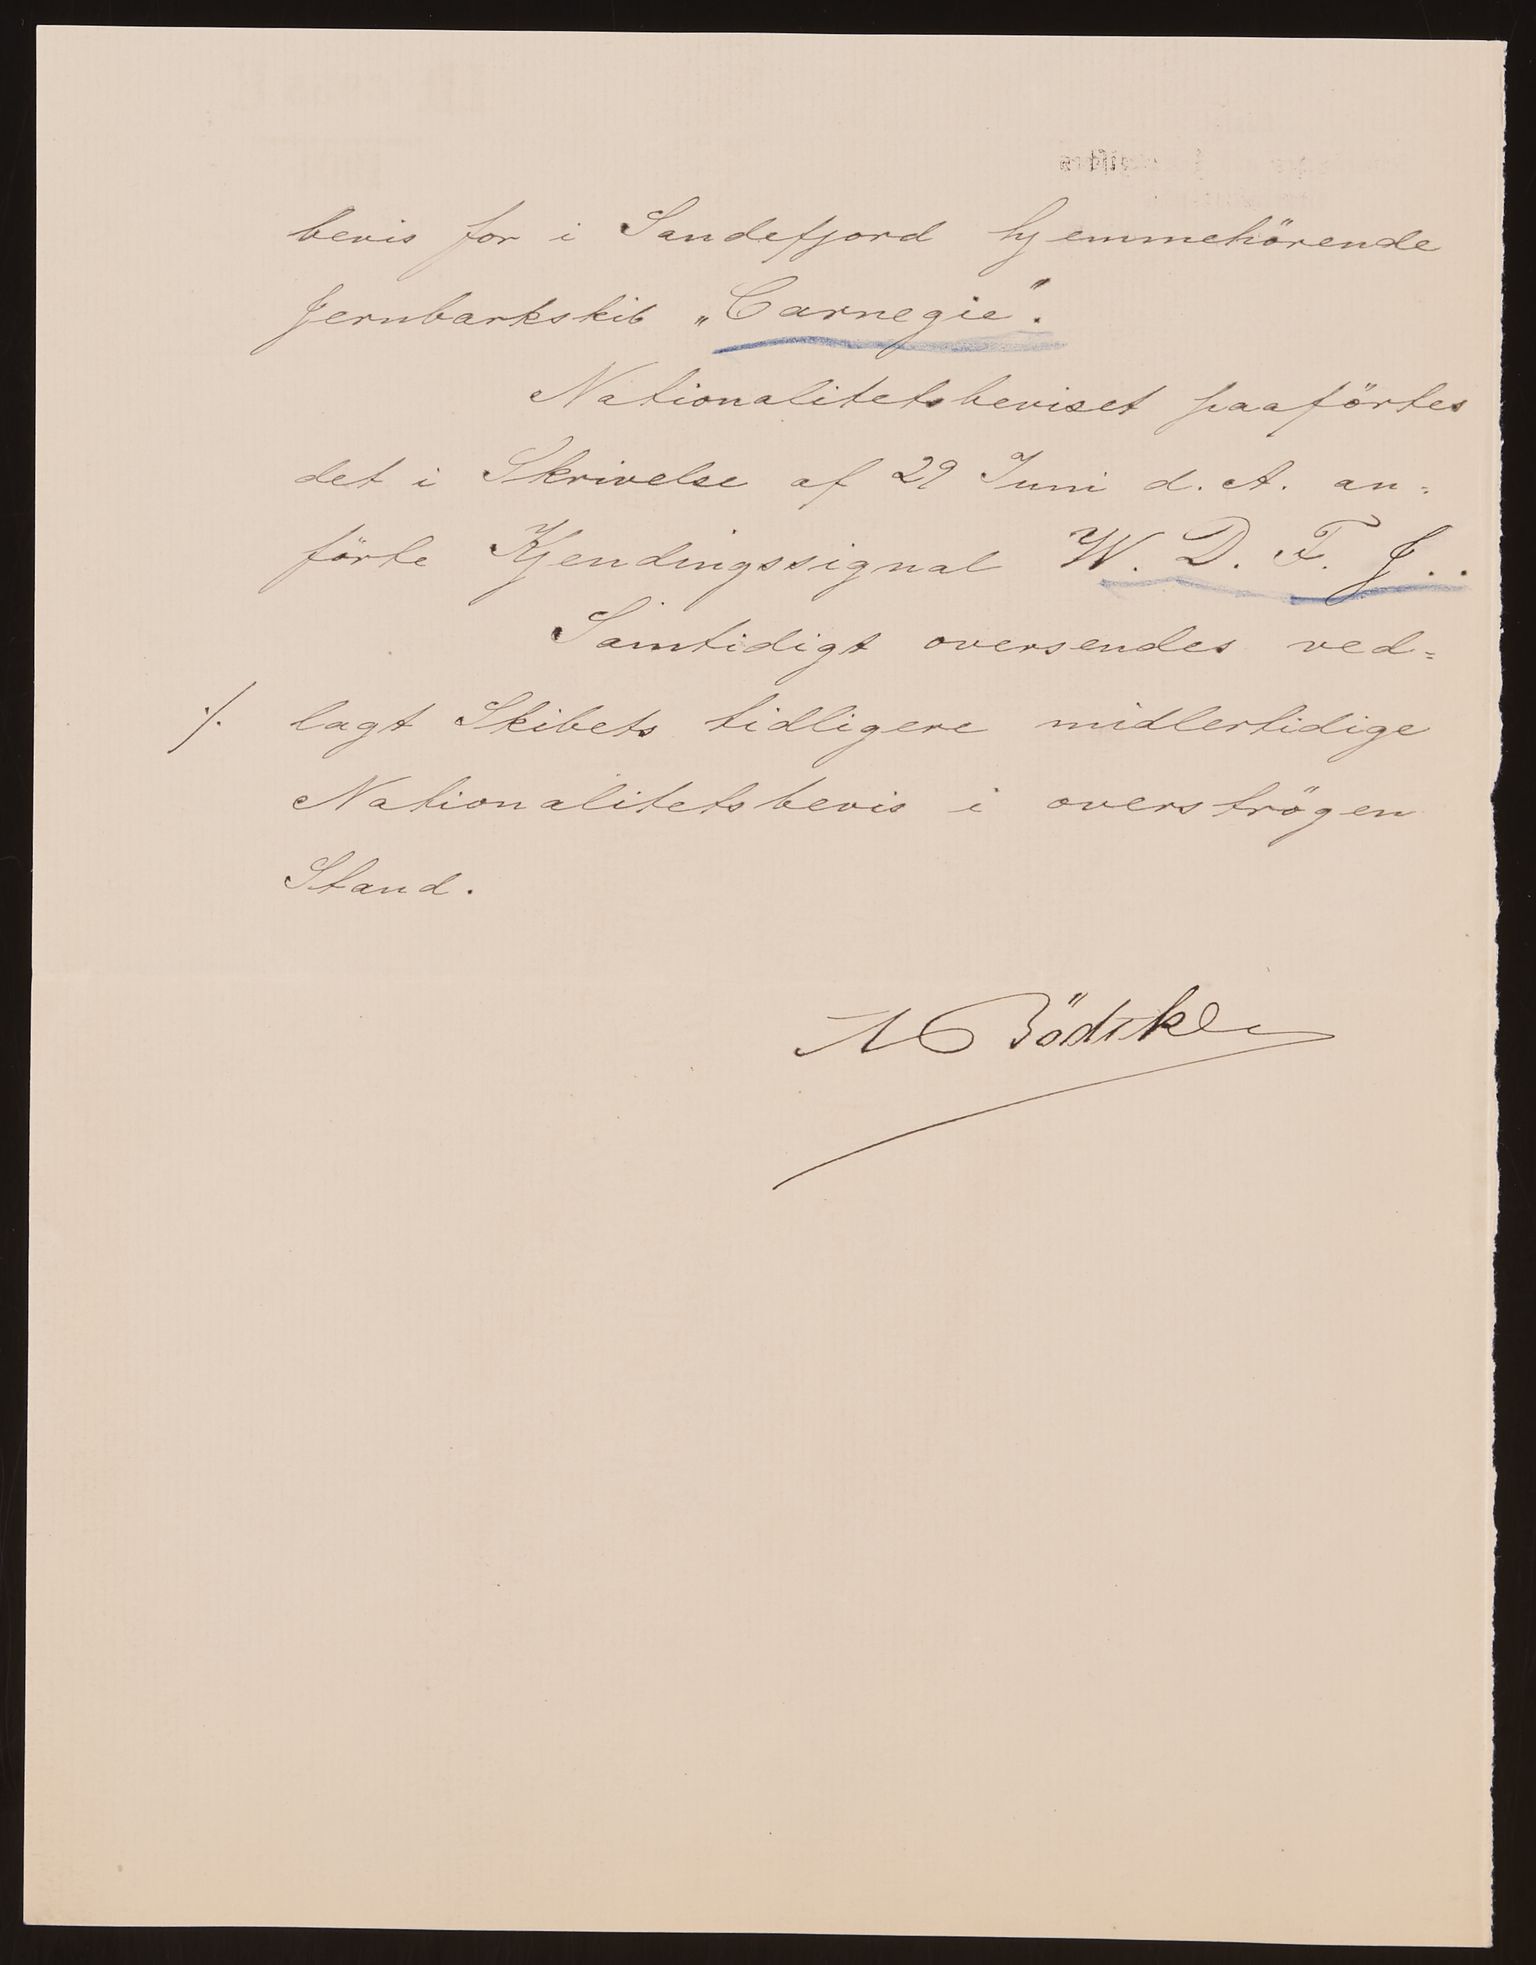 bevis for i Sandefjord hjemmehörende
Jernbarkskib „Carnegie".
Nationalitetsbeviset paaförtes
det i Skrivelse af 29 Juni d. A. an=
förte Kjendingssignal W. D. F. J..
Samtidigt oversendes ved=
./. lagt Skibets tidligere midlertidige
Nationalitetsbevis i overströgen
Stand.
Bödtker